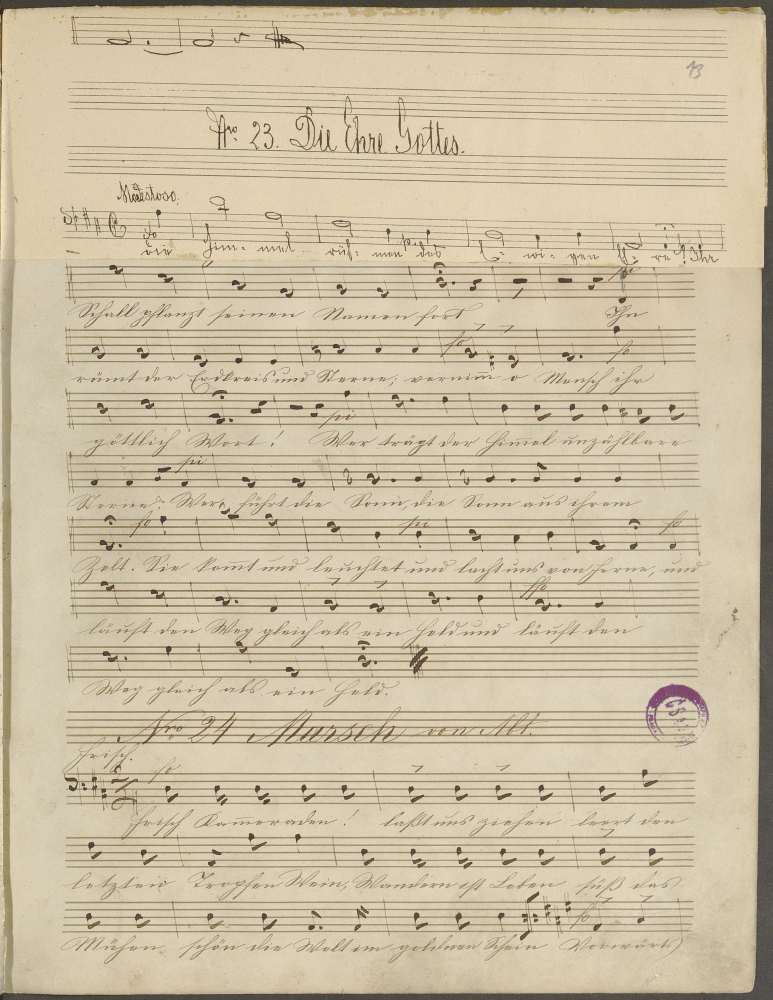 13
Nro 23. Die Ehre Gottes.
Maestoso.
Die Him- mel rüh- men des E- wi- gen Eh- re, Ihr
Schall pflanzt seinen Namen fort Ihn
rümt der Erdkreis und Sterne; vernimm o Mensch ihr
göttlich Wort! Wer trägt der Himel unzählbare
Sterne? Wer führt die Sonn, die Sonn aus ihrem
Zelt. Sie komt und leuchtet und lacht uns von ferne, und
läuft den Weg gleich als ein Held und läuft den
Weg gleich als ein Held.
Nro 24 Marsch von Abt.
Frisch.
Frisch Kameraden! laßt uns ziehen leert den
letzten Tropfen Wein, Wandern ist Leben süß das
Mühen schön die Welt im goldnen Schein Vorwärts